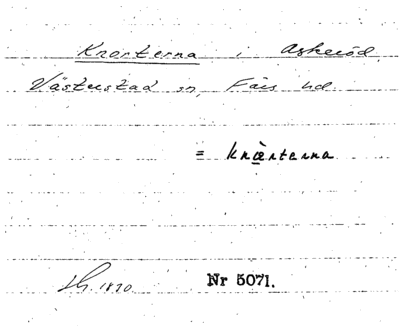 Knorterna i Askeröd
Västerstad sn, Färs hd
= knœ̀rterna
1870. Nr 5071.